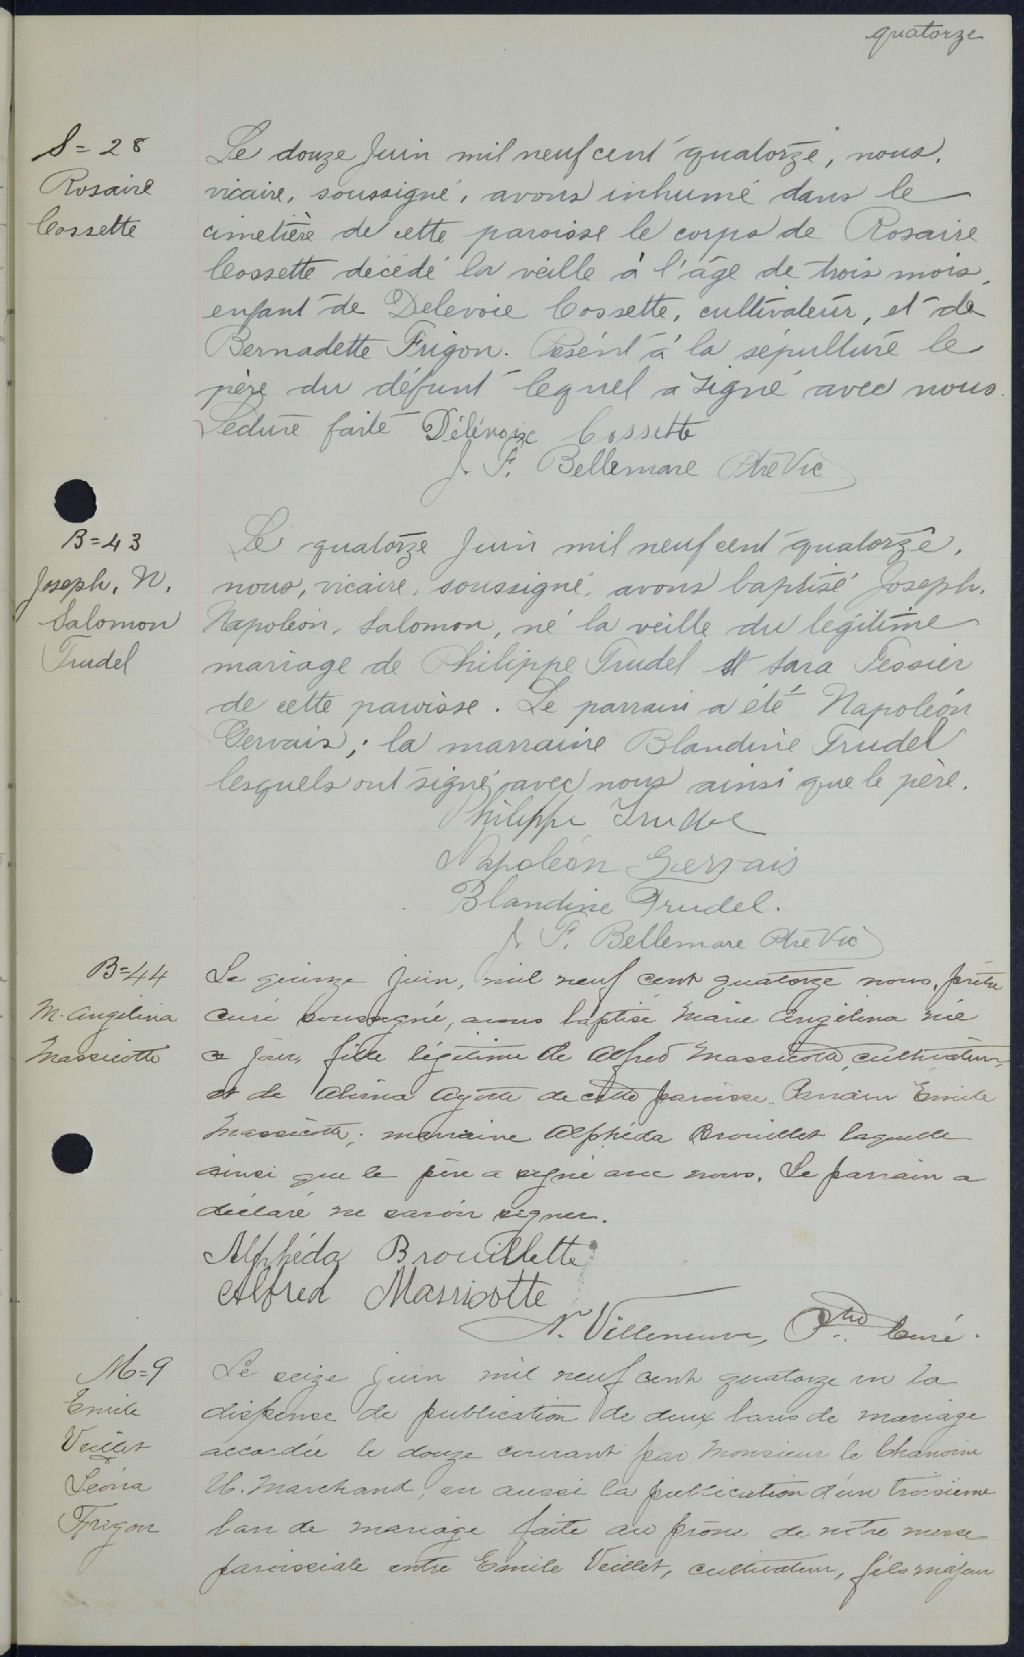 quatorze
S=28
Rosaire
Cossette
Le douze Juin mil neuf cent quatorze, nous,
vicaire, soussigné, avons inhumé dans le
cimetière de cette paroisse le corps de Rosaire
Cossette décédé la veille à l'âge de trois mois,
enfant de Delevoie Cossette, cultivateur, et de
Bernadette Frigon. Présent à la sépulture le
père du défunt lequel a signé avec nous.
Lecture faite Délévoize Cossette
J. F. Bellemare Ptre Vic
B=43
Joseph. N.
Salomon
Trudel
Le quatorze Juin mil neuf cent quatorze,
nous, vicaire, soussigné, avons baptisé Joseph,
Napoléon, Salomon, né la veille du légitime
mariage de Philippe Trudel et Sara Tessier
de cette paroisse. Le parrain a été Napoléon
Gervais; la marraine Blandine Trudel
lesquels ont signé avec nous ainsi que le père.
Philippe Trudel
Napoléon Gervais
Blandine Trudel.
J. F. Bellemare Ptre Vic
B=44
M. Angelina
Massicotte
Le quinze juin, mil neuf cent quatorze nous, prêtre
curé soussigné, avons baptisé Marie Angélina née
ce jour, fille légitime de Alfred Massicotte, cultivateur,
et de Alvina Ayotte de cette paroisse. Parrain Emile
Massicotte; marraine Alphéda Brouillet laquelle
ainsi que le père a signé avec nous. Le parrain a
déclaré ne savoir signer.
Alphéda Brouillette
Alfred Massicotte
N. Villeneuve, Ptre Curé.
M=9
Emile
Veillet
&
Léona
Frigon
Le seize juin mil neuf cent quatorze vu la
dispense de publication de deux bans de mariage
accordée le douze courant par Monsieur le Chanoine
U. Marchand, vu aussi la publication d'un troisième
ban de mariage faite au prône de notre messe
paroissiale entre Emile Veillet, cultivateur, fils majeur